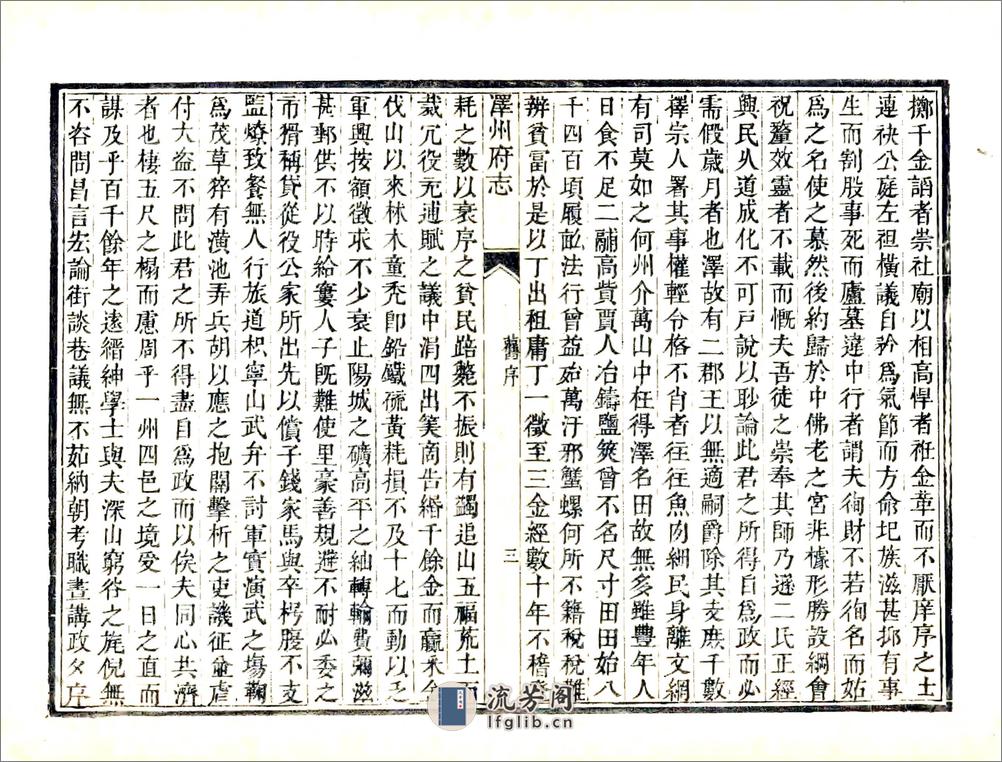 擲千金謟者崇社廟以相高悍者袵金革而不厭庠序之士
連袂公庭左袒橫議自矜為氣節而方命圯族滋甚抑有事
生而割股事死而廬墓違中行者謂夫徇財不若徇名而姑
為之名使之慕然後約歸於中佛老之宮非據形勝設網會
祝釐效靈者不載而慨夫吾徒之崇奉其師乃遜二氏正經
興民以道成化不可戶說以耴論此君之所得自為政而必
需假歲月者也澤故有二郡王以無適嗣爵除其支庶千數
擇宗人署其事權輕令格不肖者往往魚肉細民身離文網
有司莫如之何州介萬山中枉得澤名田故無多雖豐年人
日食不足二鬴高貲賈人冶鑄鹽筴曾不名尺寸田田始八
千四百頃履畝法行曾益殆萬汙邪蟹螺何所不籍稅稅難
辨貧富於是以丁出租庸丁一徵至三金經數十年不稽登
澤州府志
舊序
三
耗之數以衰序之貧民踣斃不振則有蠲追山五福荒土
歲冗役充逋賦之議中涓四出筭商告緡千餘金而贏采金
伐山以來林木童禿卽鉛鐵硫黃耗損不及十七而動以乏
軍興按額徵求不少衰止陽城之礦高平之紬轉輸費彌滋
甚郵供不以時給窶人子旣難使里豪善規避不耐必委之
市猾稱貸從役公家所出先以償子錢家馬與卒枵腹不支
監燎致餐無人行旅道枳寧山武弁不討軍實演武之場鞠
為茂草猝有潢池弄兵胡以應之抱關擊柝之吏譏征並虐
付大盜不問此君之所不得盡自為政而以俟夫同心共濟
者也棲五尺之榻而慮周乎一州四邑之境受一日之直而
謀及乎百千餘年之遠縉紳學士與夫深山窮谷之旄倪無
不咨問昌言宏論街談巷議無不茹納朝考職晝講政夕序
流芳阁
lfglib.cn